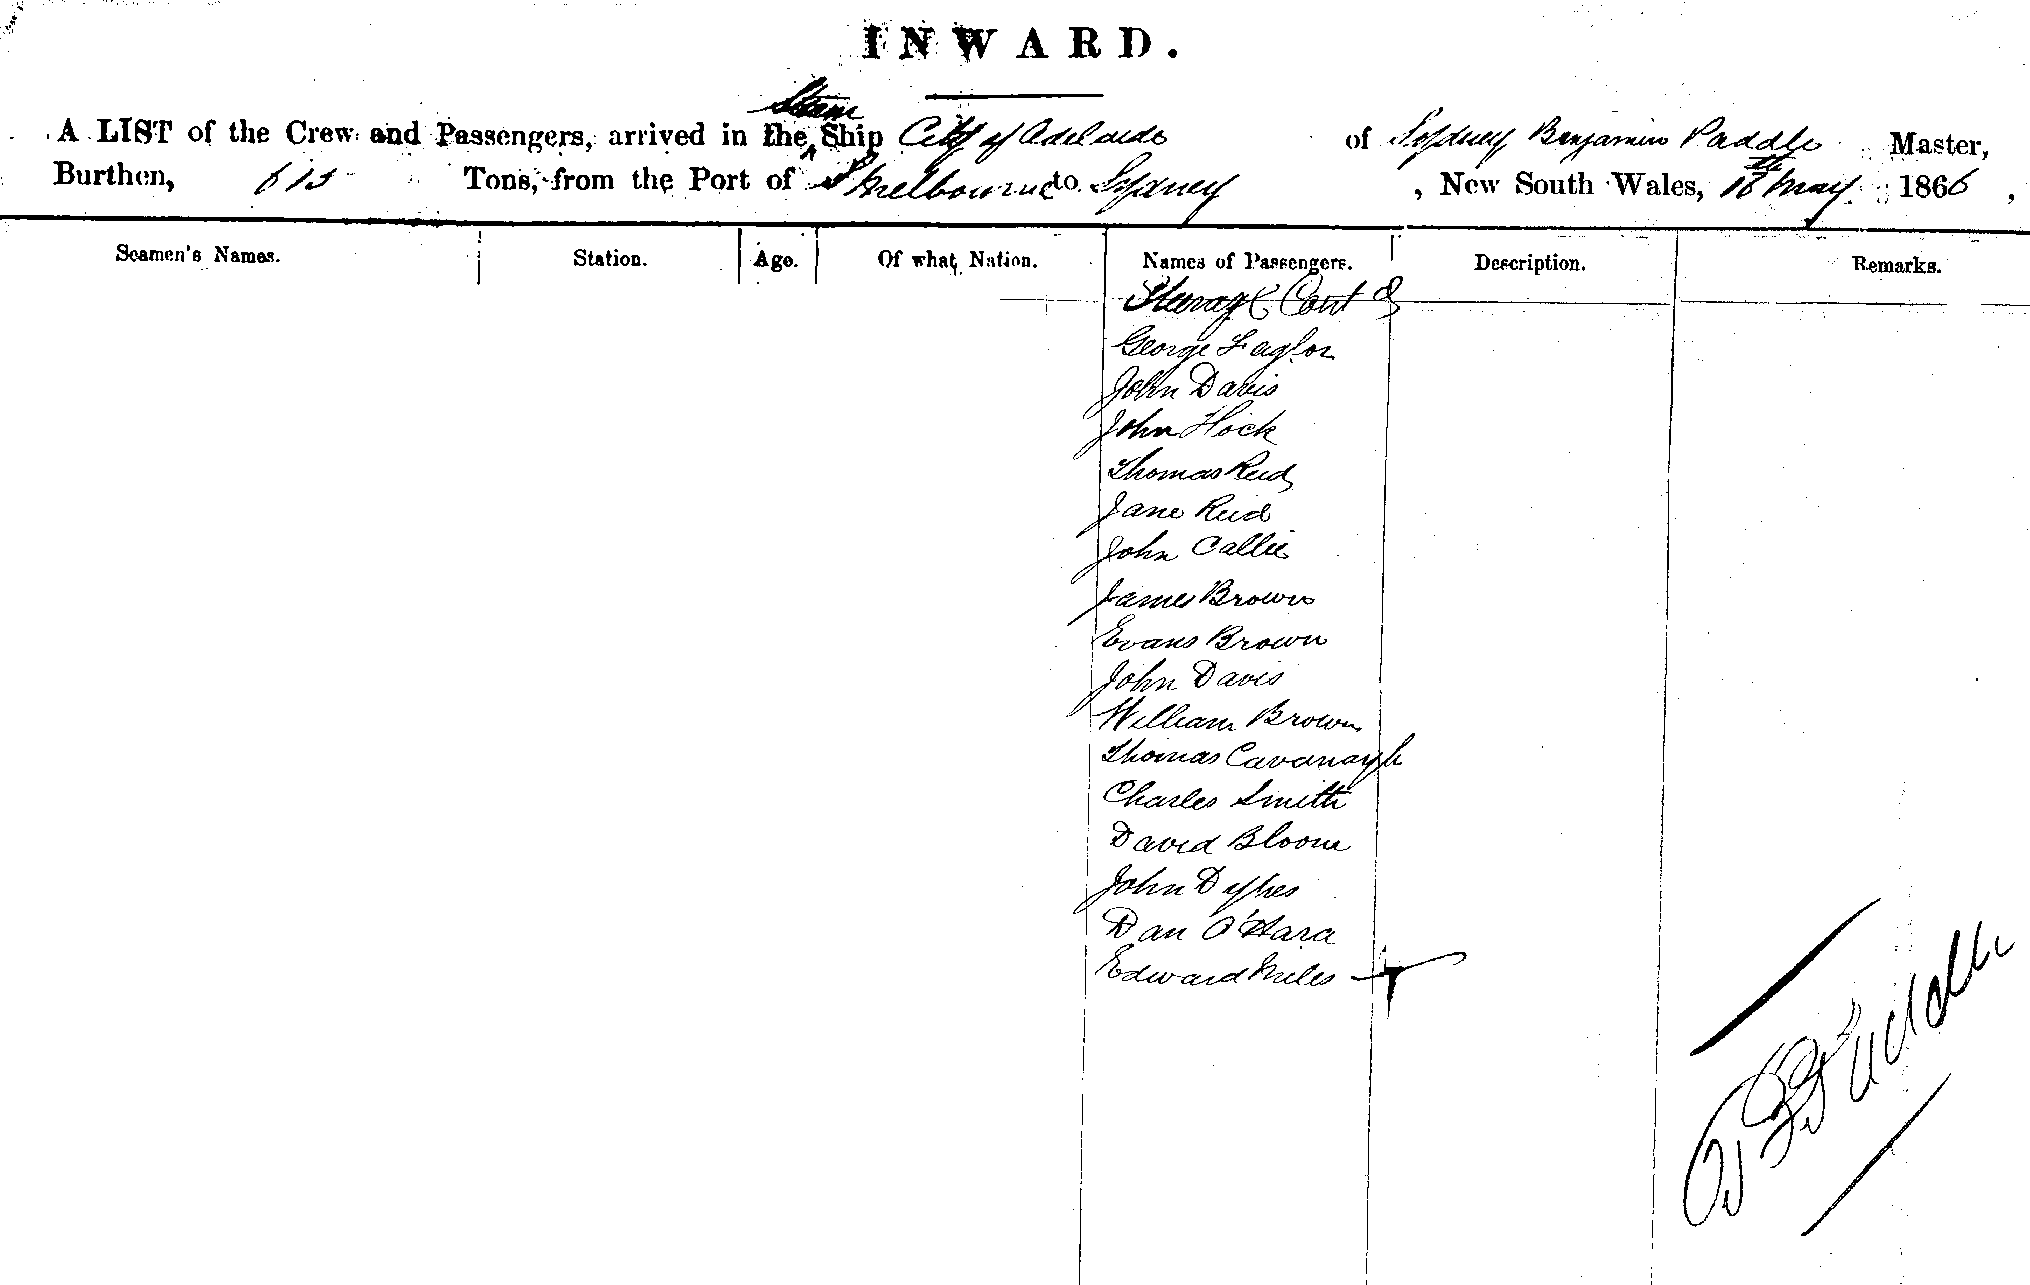 INWARD.
Steam
A LIST of the Crew and Passengers, arrived in the Ship City of Adelaide of Sydney Benjamin Paddle Master,
Burthen, 615 Tons, from the Port of Melbourne to Sydney, New South Wales, 18th May 1866,
Seamen's Names. Station. Age. Of what Nation. Names of Passengers. Description. Remarks.
Steerage Contd
George Taylor
John Davis
John Hock
Thomas Reid
Jane Reid
John Callie
James Brown
Evans Brown
John Davis
William Brown
Thomas Cavanagh
Charles Smith
David Bloom
John Dykes
Dan O'Hara
Edward Miles
Paddle